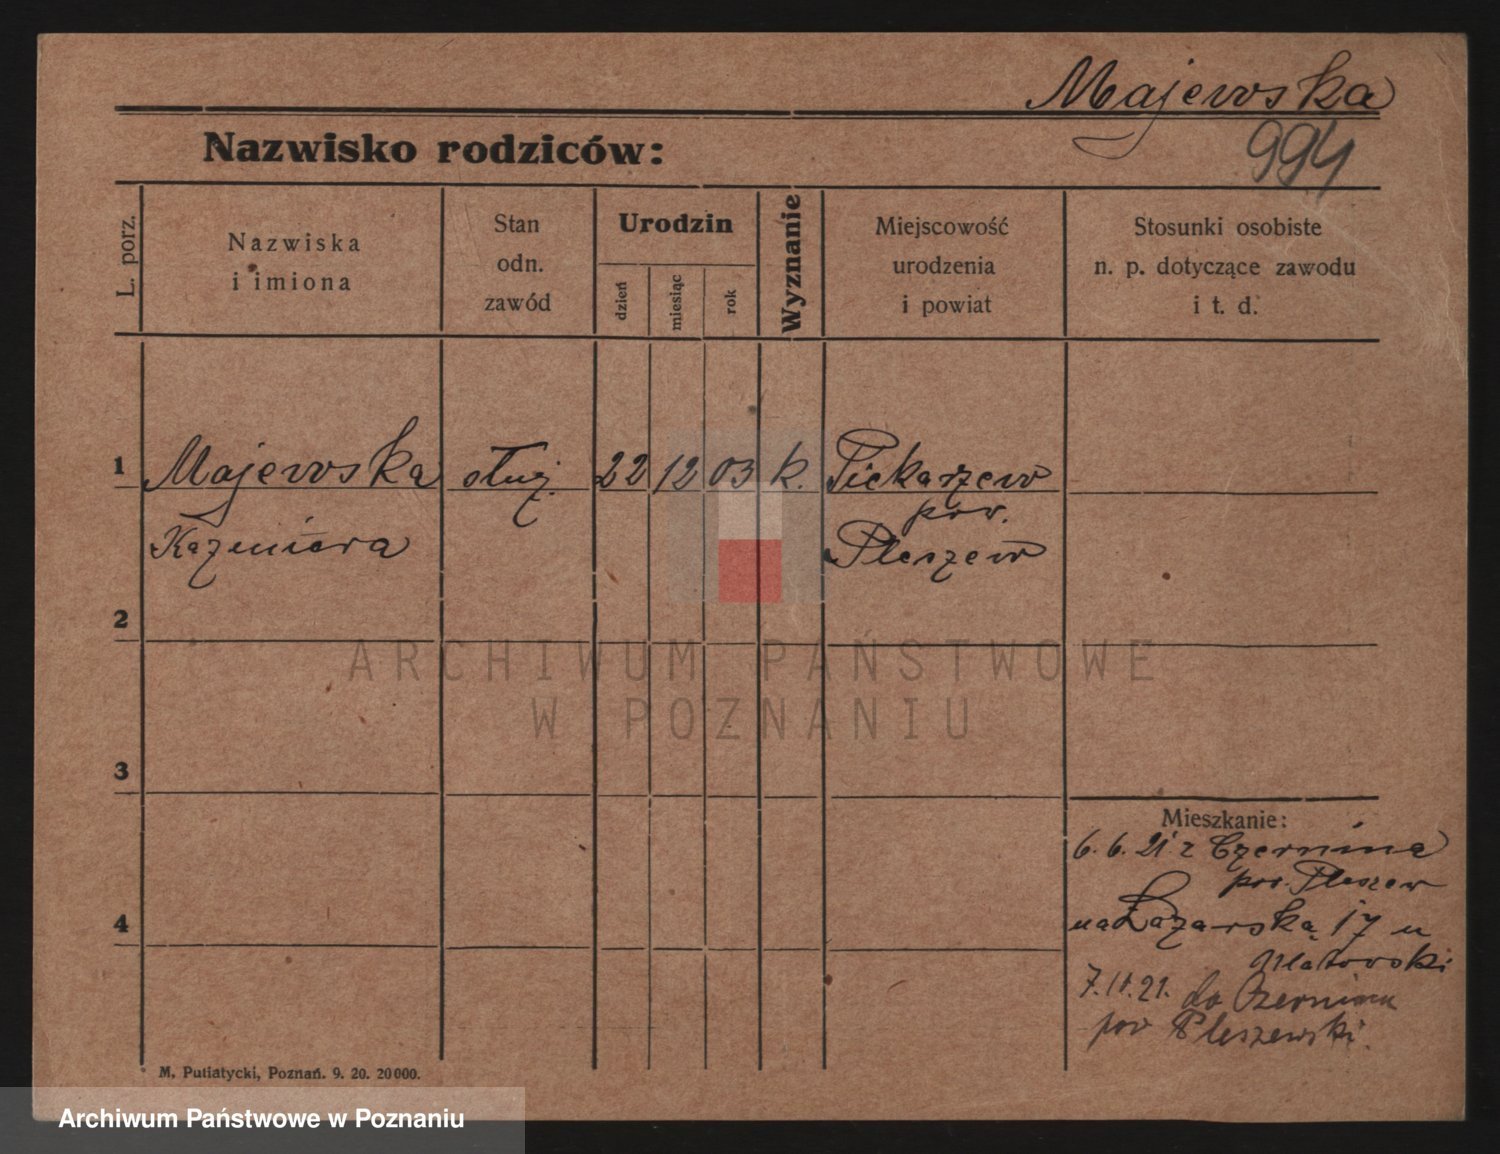 Majewska
994
Nazwisko rodziców:
L. porz.
Nazwiska
i imiona
Stan
odn.
zawód
Urodzin
dzień
miesiąc
rok
Wyznanie
Miejscowość
urodzenia
i powiat
Stosunki osobiste
n. p. dotyczące zawodu
i t. d.
1 Majewska służ. 22 12 03 k. Piekarzew
pow.
Kazimiera Pleszew
2
ARCHIWUM PAŃSTWOWE
W POZNANIU
3
Mieszkanie:
6. 6. 21. z Czernina
pow. Pleszew
4
na Łazarską 17 u
7. 11. 21. do Czernina
pow Pleszewski.
M. Putiatycki, Poznań. 9. 20. 20000.
Archiwum Państwowe w Poznaniu